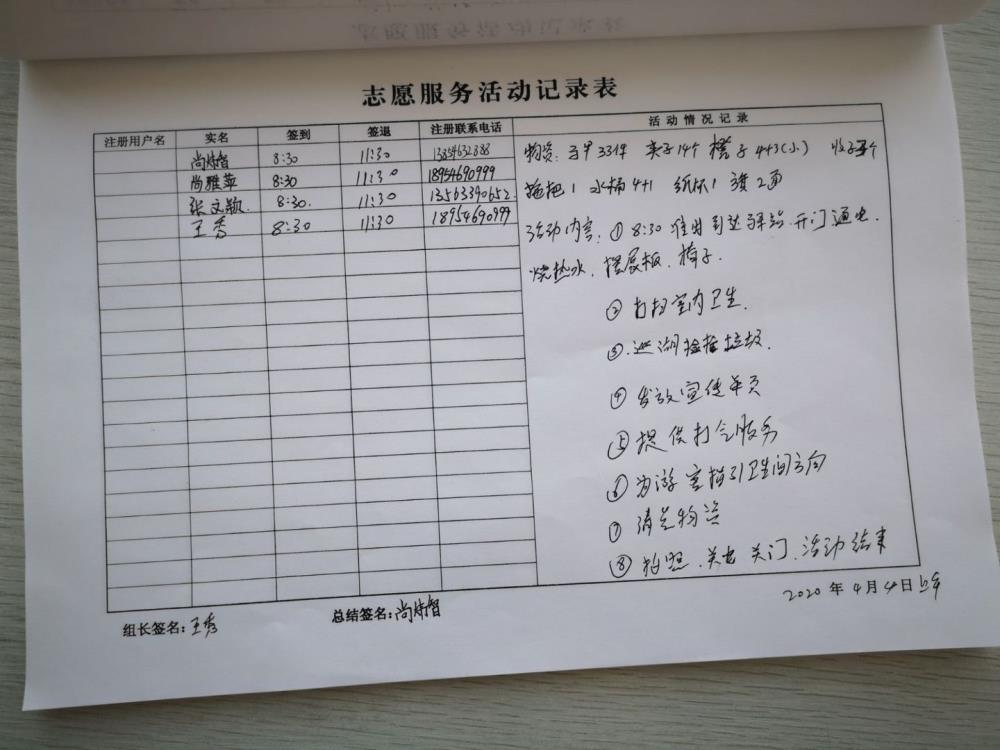 志愿服务活动记录表
注册用户名 实名 签到 签退 注册联系电话 活动情况记录
尚炜智 8:30 11:30 13854632888
尚雅苹 8:30 11:30 18954690999
张文颖 8:30. 11:30 13563390652
王秀 8:30 11:30 18954690999
物资: 马甲33件 夹子14个 凳子4+3(小)
拖把1 水桶4+1 纸杯1 旗2面
活动内容: ① 8:30 准时到达驿站.开门通电.
烧热水. 摆展板、椅子.
② 打扫室内卫生.
③.巡湖捡拾垃圾.
④ 发放宣传单页
⑤ 提供打气服务
⑥ 为游客指引卫生间方向
⑦ 清点物资
⑧ 拍照.关电关门.活动结束
2020年4月4日上午
组长签名: 王秀 总结签名: 尚炜智